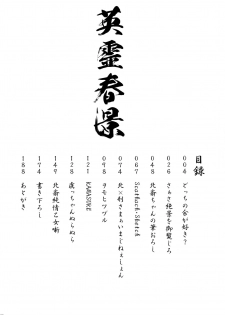 英霊春景
目録
004 どっちの余が好き?
026 さぁさ絶景を御覧じろ
048 北斎ちゃんの筆おろし
067 Scathach Sketch
074 北×剣さまぁいまじねぇしょん
098 タモヒツヅル
121 KARASUKE
128 虞っちゃんぬらぬら
149 北斎純情乙女噺
174 書き下ろし
188 あとがき